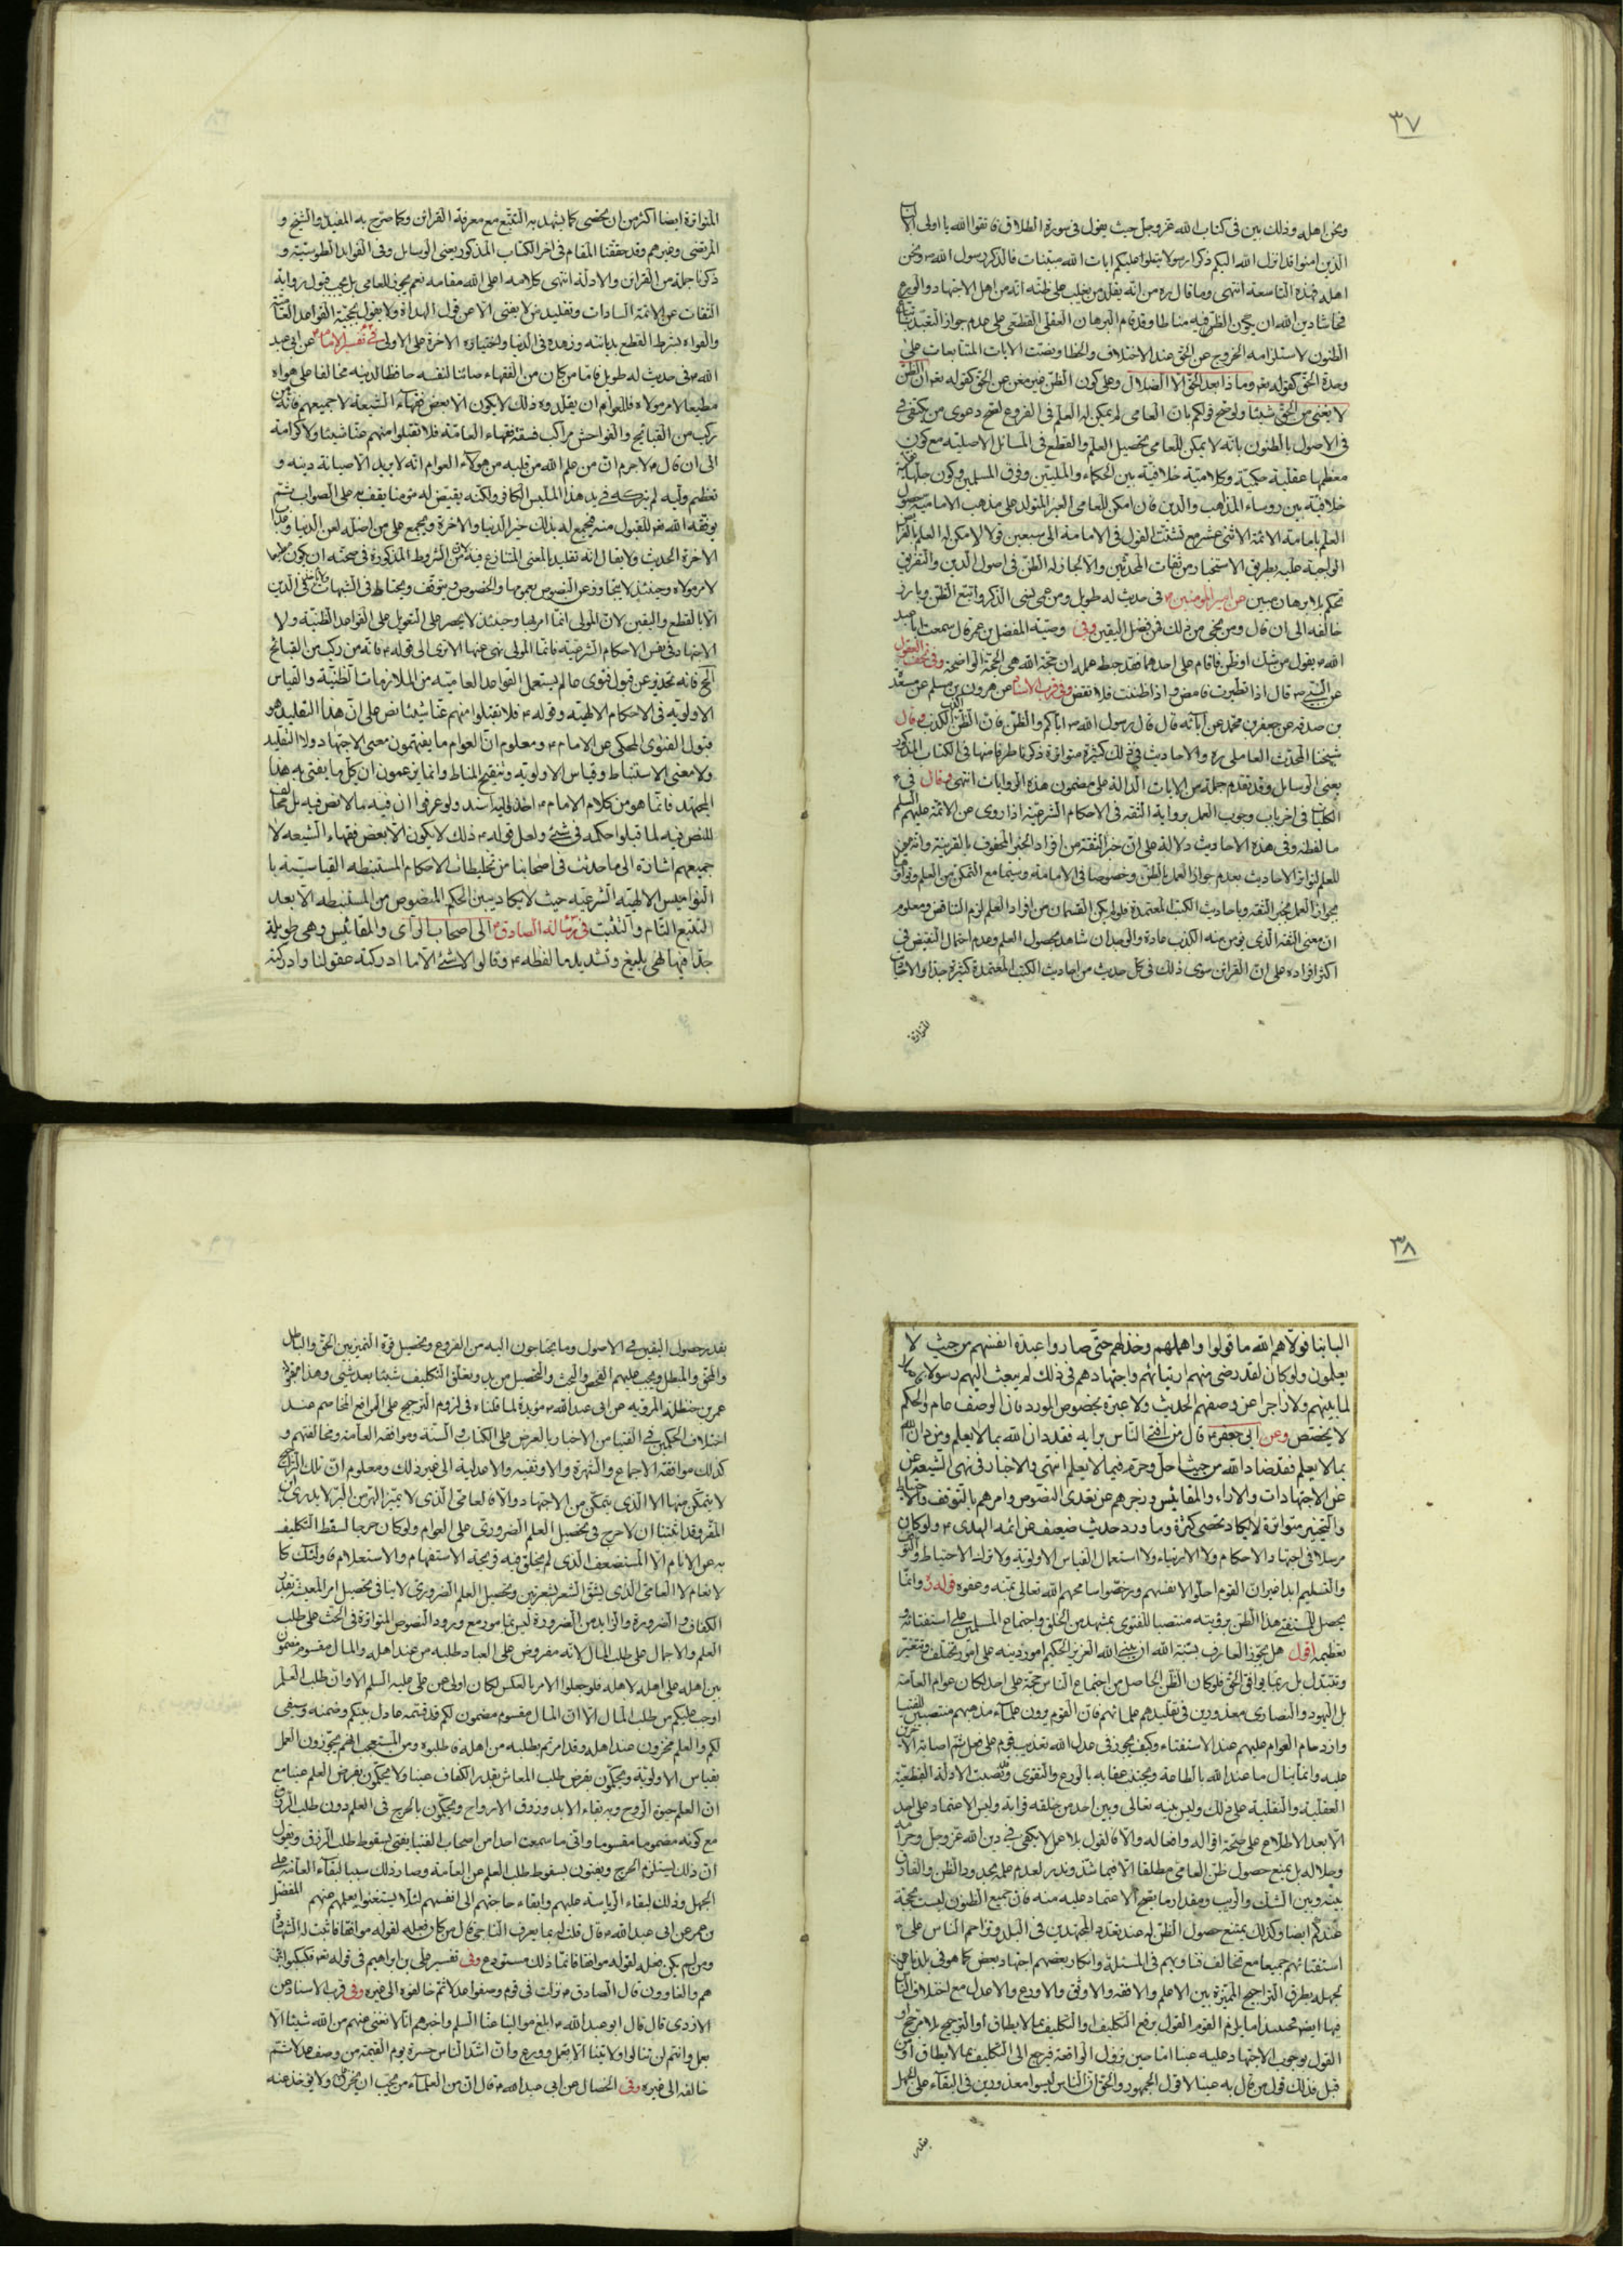 ٣٧
ونحن اهله وذلك بين فى كتاب الله عزوجل حيث يقول فى سورة الطلاق فاتقوا الله يا اولى الا
الذين امنوا قد انزل الله اليكم ذكرا رسولا يتلوا عليكم ايات الله مبينات فالذكر رسول الله ونحن
اهله فهذه التاسعة انتهى وما قال ره من انه يقلد من يغلب على ظنه انه من اهل الاجتهاد والورع
فحاشا دين الله ان يكون الظن فيه مناطا وقد قام البرهان العقلى القطعى على عدم جواز التعبد
الظنون لاستلزامه الخروج عن الحق عند الاختلاف والخطا ونصت الايات المتتابعات على
وحدة الحق كقوله تعو وماذا بعد الحق الا الضلال وعلى كون الظن غير مغن عن الحق كقوله تعو ان الظن
لا يغنى من الحق شيئا ولو صح قولكم بان العامى لم يمكن له العلم فى الفروع لصح دعوى من يكتفى
فى الاصول بالظنون بانه لا يمكن للعامى تحصيل العلم والقطع فى المسائل الاصلية مع كون
معظمها عقلية حكمية وكلامية خلافية بين الحكماء والمليين وفرق المسلمين وكون جلها
خلافية بين روساء المذاهب والدين فان امكن للعامى الغير المتولد على مذهب الامامية
العلم بامامة الائمة الاثنى عشر مع تشتت القول فى الامامة الى سبعين قولا لامكن له العلم
الواجبة عليه بطريق الاستخبار من ثقات المحدثين والا لجاز له الظن فى اصول الدين والتفريق
تحكم بلا برهان مبين عن امير المومنين فى حديث له طويل ومن عمى نسى الذكر واتبع الظن وبارز
خالقه الى ان قال ومن نجى من ذلك فمن فضل اليقين وفى وصية المفضل بن عمر قال سمعت ابا عبد
الله يقول من شك او ظن فاقام على احدهما فقد حبط عمله ان حجة الله هى الحجة الواضحة وفى تحف العقول
عن النبى قال اذا تطيرت فامض واذا ظننت فلا تقض وفى قرب الاسناد عن هرون بن مسلم عن مسعدة
بن صدقه عن جعفر بن محمد عن آبائه قال قال رسول الله اياكم والظن فان الظن اكذب الكذب وقال
شيخنا المحدث العاملى ره والاحاديث فى ذلك كثيرة متواترة ذكرنا طرفا منها فى الكتاب المذكور
يعنى الوسايل وقد تقدم جملة من الايات الدالة على مضمون هذه الروايات انتهى وقال فى
الكليات فى اخر باب وجوب العمل برواية الثقة فى الاحكام الشرعية اذا روى عن الائمة عليهم السلم
ما لفظه وفى هذه الاحاديث دلالة على ان خبر الثقة من افراد الخبر المحفوف بالقرينة وانه
للعلم لتواتر الاحاديث بعدم جواز العمل بالظن وخصوصا فى الامامة وسيما مع التمكن من العلم
بجواز العمل بخبر الثقة وباحاديث الكتب المعتمدة فلو لم يكن القسمان من افراد العلم لزم التناقض ومعلوم
ان معنى الثقة الذى يومن منه الكذب عادة والوجدان شاهد بحصول العلم وعدم احتمال النقيض فى
اكثر افراده على ان القرائن سوى ذلك فى كل حديث من احاديث الكتب المعتمدة كثيرة جدا والاحاديث
المتواترة
المتواترة ايضا اكثر من ان تحصى كما يشهد به التتبع مع معرفة القرائن وكما صرح به المفيد والشيخ و
المرتضى وغيرهم وقد حققنا المقام فى اخر الكتاب المذكور يعنى الوسايل وفى الفوايد الطوسية و
ذكرنا جملة من القرائن والادلة انتهى كلامه اعلى الله مقامه نعم يجوز للعامى بل يجب قبول رواية
الثقات عن الائمة السادات وتقليد من لا يفتى الا عن قول الهداة ولا يقول بحجية القواعد
والهواء بشرط القطع بديانته وزهده فى الدنيا واختياره الاخرة على الاولى فى تفسير الامام عن ابى عبد
الله فى حديث له طويل فاما من كان من الفقهاء صائنا لنفسه حافظا لدينه مخالفا على هواه
مطيعا لامر مولاه فللعوام ان يقلدوه وذلك لا يكون الا بعض فقهاء الشيعة لا جميعهم فانه من
ركب من القبايح والفواحش مراكب فسقة فقهاء العامة فلا تقبلوا منهم عنا شيئا ولا كرامة
الى ان قال لا جرم ان من علم الله من قلبه من هولاء العوام انه لا يريد الا صيانة دينه و
تعظيم وليه لم يتركه فى يد هذا الملبس الكافر ولكنه يقيض له مومنا يقف به على الصواب ثم
يوفقه الله تعو للقبول منه فيجمع له بذلك خير الدنيا والاخرة ويجمع على من اضله لعن الدنيا وعذاب
الاخرة الحديث ولا يقال انه تقليد بالمعنى المتنازع فيه لان من الشروط المذكورة فى صحته ان يكون
لامر مولاه وحينئذ لا يتجاوز عن النصوص بعمومها والخصوص ويتوقف ويحتاط فى الشبهات فى الدين
الا بالقطع واليقين لان المولى انما امر بها وحينئذ لا يجسر على التعويل على القواعد الظنية ولا
الاجتهاد فى نفس الاحكام الشرعية فانما المولى نهى عنها الا ترى الى قوله فانه من ركب من القبائح
الخ فانه تحذير عن قبول فتوى عالم يستعمل القواعد العامية من الملازمات الظنية والقياس
الاولوية فى الاحكام الالهية وقوله فلا تقبلوا منهم عنا شيئا نص على ان هذا التقليد هو
قبول الفتوى المحكى عن الامام ومعلوم ان العوام ما يفهمون معنى الاجتهاد ولا التقليد
ولا معنى الاستنباط وقياس الاولوية وتنقيح المناط وانما يزعمون ان كل ما يفتى به هذا
المجتهد فانما هو من كلام الامام اخذ واليه اسند ولو عرفوا ان فيه ما لا نص فيه بل
للنص فيه لما قبلوا حكمه فى شئ ولعل قوله ذلك لا يكون الا بعض فقهاء الشيعه لا
جميعهم اشارة الى ما حدثت فى اصحابنا من تخليطات الاحكام المستنبطه القياسيه با
النواميس الالهية الشرعيه حيث لا يكاد يبين الحكم المنصوص من المستنبطه الا بعد
التتبع التام والتثبت فى رسالة الصادق الى اصحاب الراى والمقائيس وهى طويلة
جدا فيها نهى بليغ وتشديد ما لفظه وقالوا لا شئ الا ما ادركته عقولنا وادركته
٣٨
البابنا فولاهم الله ما تولوا واهملهم وخذلهم حتى صاروا عبدة انفسهم من حيث لا
يعلمون ولو كان لقد رضى منهم ارتيائهم واجتهادهم فى ذلك لم يبعث اليهم رسولا
لما بينهم ولا زاجرا عن وصفهم الحديث ولا عبرة بخصوص المورد فان الوصف عام والحكم
لا يخصص وعن ابى جعفر قال من افتى الناس برايه فقد دان الله بما لا يعلم ومن دان الله
بما لا يعلم فقد ضاد الله من حيث احل وحرم فيما لا يعلم انتهى والاخبار فى نهى الشيعة
عن الاجتهادات والاراء والمقائيس وزجرهم عن تعدى النصوص وامرهم بالتوقف والاحتياط
والتخيير متواترة لا يكاد تحصى كثرة وما ورد حديث ضعيف عن ائمه الهدى ولو كان
مرسلا فى اجتهاد الاحكام ولا الارتياء ولا استعمال القياس الاولوية ولا ترك الاحتياط
والتسليم ابدا غير ان القوم احلوا لانفسهم ورخصوا سامحهم الله تعالى بمنه وعفوه قوله وانما
يحصل للمستفتى هذا الظن برويته منتصبا للفتوى بمشهد من الخلق واجتماع المسلمين على استفتائه و
تعظيمه اقول هل يجوز العارف بسنة الله ان يبنى الله العزيز الحكيم امور دينه على امور تختلف وتتغير
وتتبدل بل ربما يوافق الحق فلو كان الظن الحاصل من اجتماع الناس حجة على احد لكان عوام العامة
بل اليهود والنصارى معذورين فى تقليدهم علمائهم فان القوم يرون علماء مذهبهم منتصبين للفتيا
وازدحام العوام عليهم عند الاستفتاء وكيف يجوز فى عدل الله تعذيب قوم على فعل ثم
عليه وانما ينال ما عند الله بالطاعة ويجتنب عقابه بالورع والتقوى وقد نصبت الادلة القطعية
العقلية والنقلية على ذلك وليس بينه تعالى وبين احد من خلقه قرابة وليس الاعتماد على احد
الا بعد الاطلاع على صحة اقواله وافعاله والا فالقول بلا عمل لا يكفى فى دين الله عز وجل وحرامه
وحلاله بل يمنع حصول ظن العامى مطلقا الا فيما شذ وندر لعدم علمه بحدود الظن والفارق
بينه وبين الشك والريب ومقدار ما يقع الاعتماد عليه منه فان جميع الظنون ليست بحجة
عندكم ايضا وكذلك يمتنع حصول الظن له عند تعدد المجتهدين فى البلد وتزاحم الناس على
استفتائهم جميعا مع تخالف فتاويهم فى المسئلة وانكار بعضهم اجتهاد بعض كما هو فى بلدنا
لجهله بطرق التراجيح المميزة بين الاعلم والافقه والاوثق والاورع والاعدل مع اختلاف
فيها ايضا فحينئذ اما يلزم القوم القول برفع التكليف او التكليف بما لا يطاق او الترجيح بلا مرجح او
القول بوجوب الاجتهاد عليه عينا اما حين نزول الواقعة فيرجع الى التكليف بما لا يطاق او من
قبل فذلك قول من قال به عينا لا قول الجمهور والحق ان الناس ليسوا معذورين فى البقاء على الجهل
بقدر حصول اليقين فى الاصول وما يحتاجون اليه من الفروع وتحصيل قوة التميز بين الحق والباطل
والمحق والمبطل ويجب عليهم الفحص والبحث والتحصيل من يد وتعلق التكليف شيئا بعد شئ وهذا مقبولة
عمر بن حنظلة المروية عن ابى عبد الله مؤيدة لما قلناه فى لزوم الترجيح على المرافع المخاصم عند
اختلاف الحكمين فى الفتيا من الاخبار بالعرض على الكتاب والسنة وموافقه العامة ومخالفتهم و
كذلك موافقة الاجماع والشهرة والاوثقيه والاعدلية الى غير ذلك ومعلوم ان تلك التراجيح
لا يتمكن منها الا الذى يتمكن من الاجتهاد والا فالعامى الذى لا يميز الهر من البر لا يدرى
المفر وقد اثبتنا ان لا حرج فى تحصيل العلم الضرورى على العوام ولو كان حرجا لسقط التكليف
به عن الانام الا المستضعف الذى لم يخلق فيه قريحة الاستفهام والاستعلام فاولئك كا
لانعام لا العامى الذى يشق الشعر بشعرتين وتحصيل العلم الضرورى لا ينافى تحصيل امر المعيشة بقدر
الكفاف والضرورة والزايد من الضرورة ليس بمامور مع ورود النصوص المتواترة فى الحث على طلب
العلم والاجمال على طلب المال لانه مفروض على العباد طلبه من عند اهله والمال مقسوم مضمون
بين اهله على اهله لاهله فلو جعلوا الامر بالعكس لكان اولى عن على عليه السلم الا وان طلب العلم
اوجب عليكم من طلب المال الا ان المال مقسوم مضمون لكم قد قسمه عادل بينكم وضمنه وسيفى
لكم والعلم مخزون عند اهله وقد امرتم بطلبه من اهله فاطلبوه ومن المستعجب انهم يجوزون العمل
بقياس الاولوية ويحكمون بفرض طلب المعاش بقدر الكفاف عينا ولا يحكمون بفرض العلم عينا مع
ان العلم حيوة الروح وبه بقاء الابد ورزق الارواح ويحكمون بالحرج فى العلم دون طلب الرزق
مع كونه مضموما مقسوما وانى ما سمعت احدا من اصحاب الفتيا يفتى بسقوط طلب الرزق ويقول
ان ذلك يستلزم الحرج ويفتون بسقوط طلب العلم عن العامة وصار ذلك سببا لبقاء العامة على
الجهل وذلك لبقاء الرياسة عليهم وابقاء حاجتهم الى انفسهم لئلا يستغنوا بعلمهم عنهم المفضل
بن عمر عن ابى عبد الله قال قلت له بما يعرف الناجى قال من كان فعله لقوله موافقا فاثبت له الشهادة
ومن لم يكن فعله لقوله موافقا فانما ذلك مستودع وفى تفسير على بن ابراهيم فى قوله تعو فكبكبوا فيها
هم والغاوون قال الصادق نزلت فى قوم وصفوا عدلا ثم خالفوه الى غيره وفى قرب الاسناد عن
الازدى قال قال ابو عبد الله ابلغ موالينا عنا السلم واخبرهم انا لا نغنى عنهم من الله شيئا الا
بعمل وانهم لن ينالوا ولايتنا الا بعمل وورع وان اشد الناس حسرة يوم القيمة من وصف عدلا ثم
خالفه الى غيره وفى الخصال عن ابى عبد الله قال ان من العلماء من يحب ان يخزن ولا يؤخذ عنه